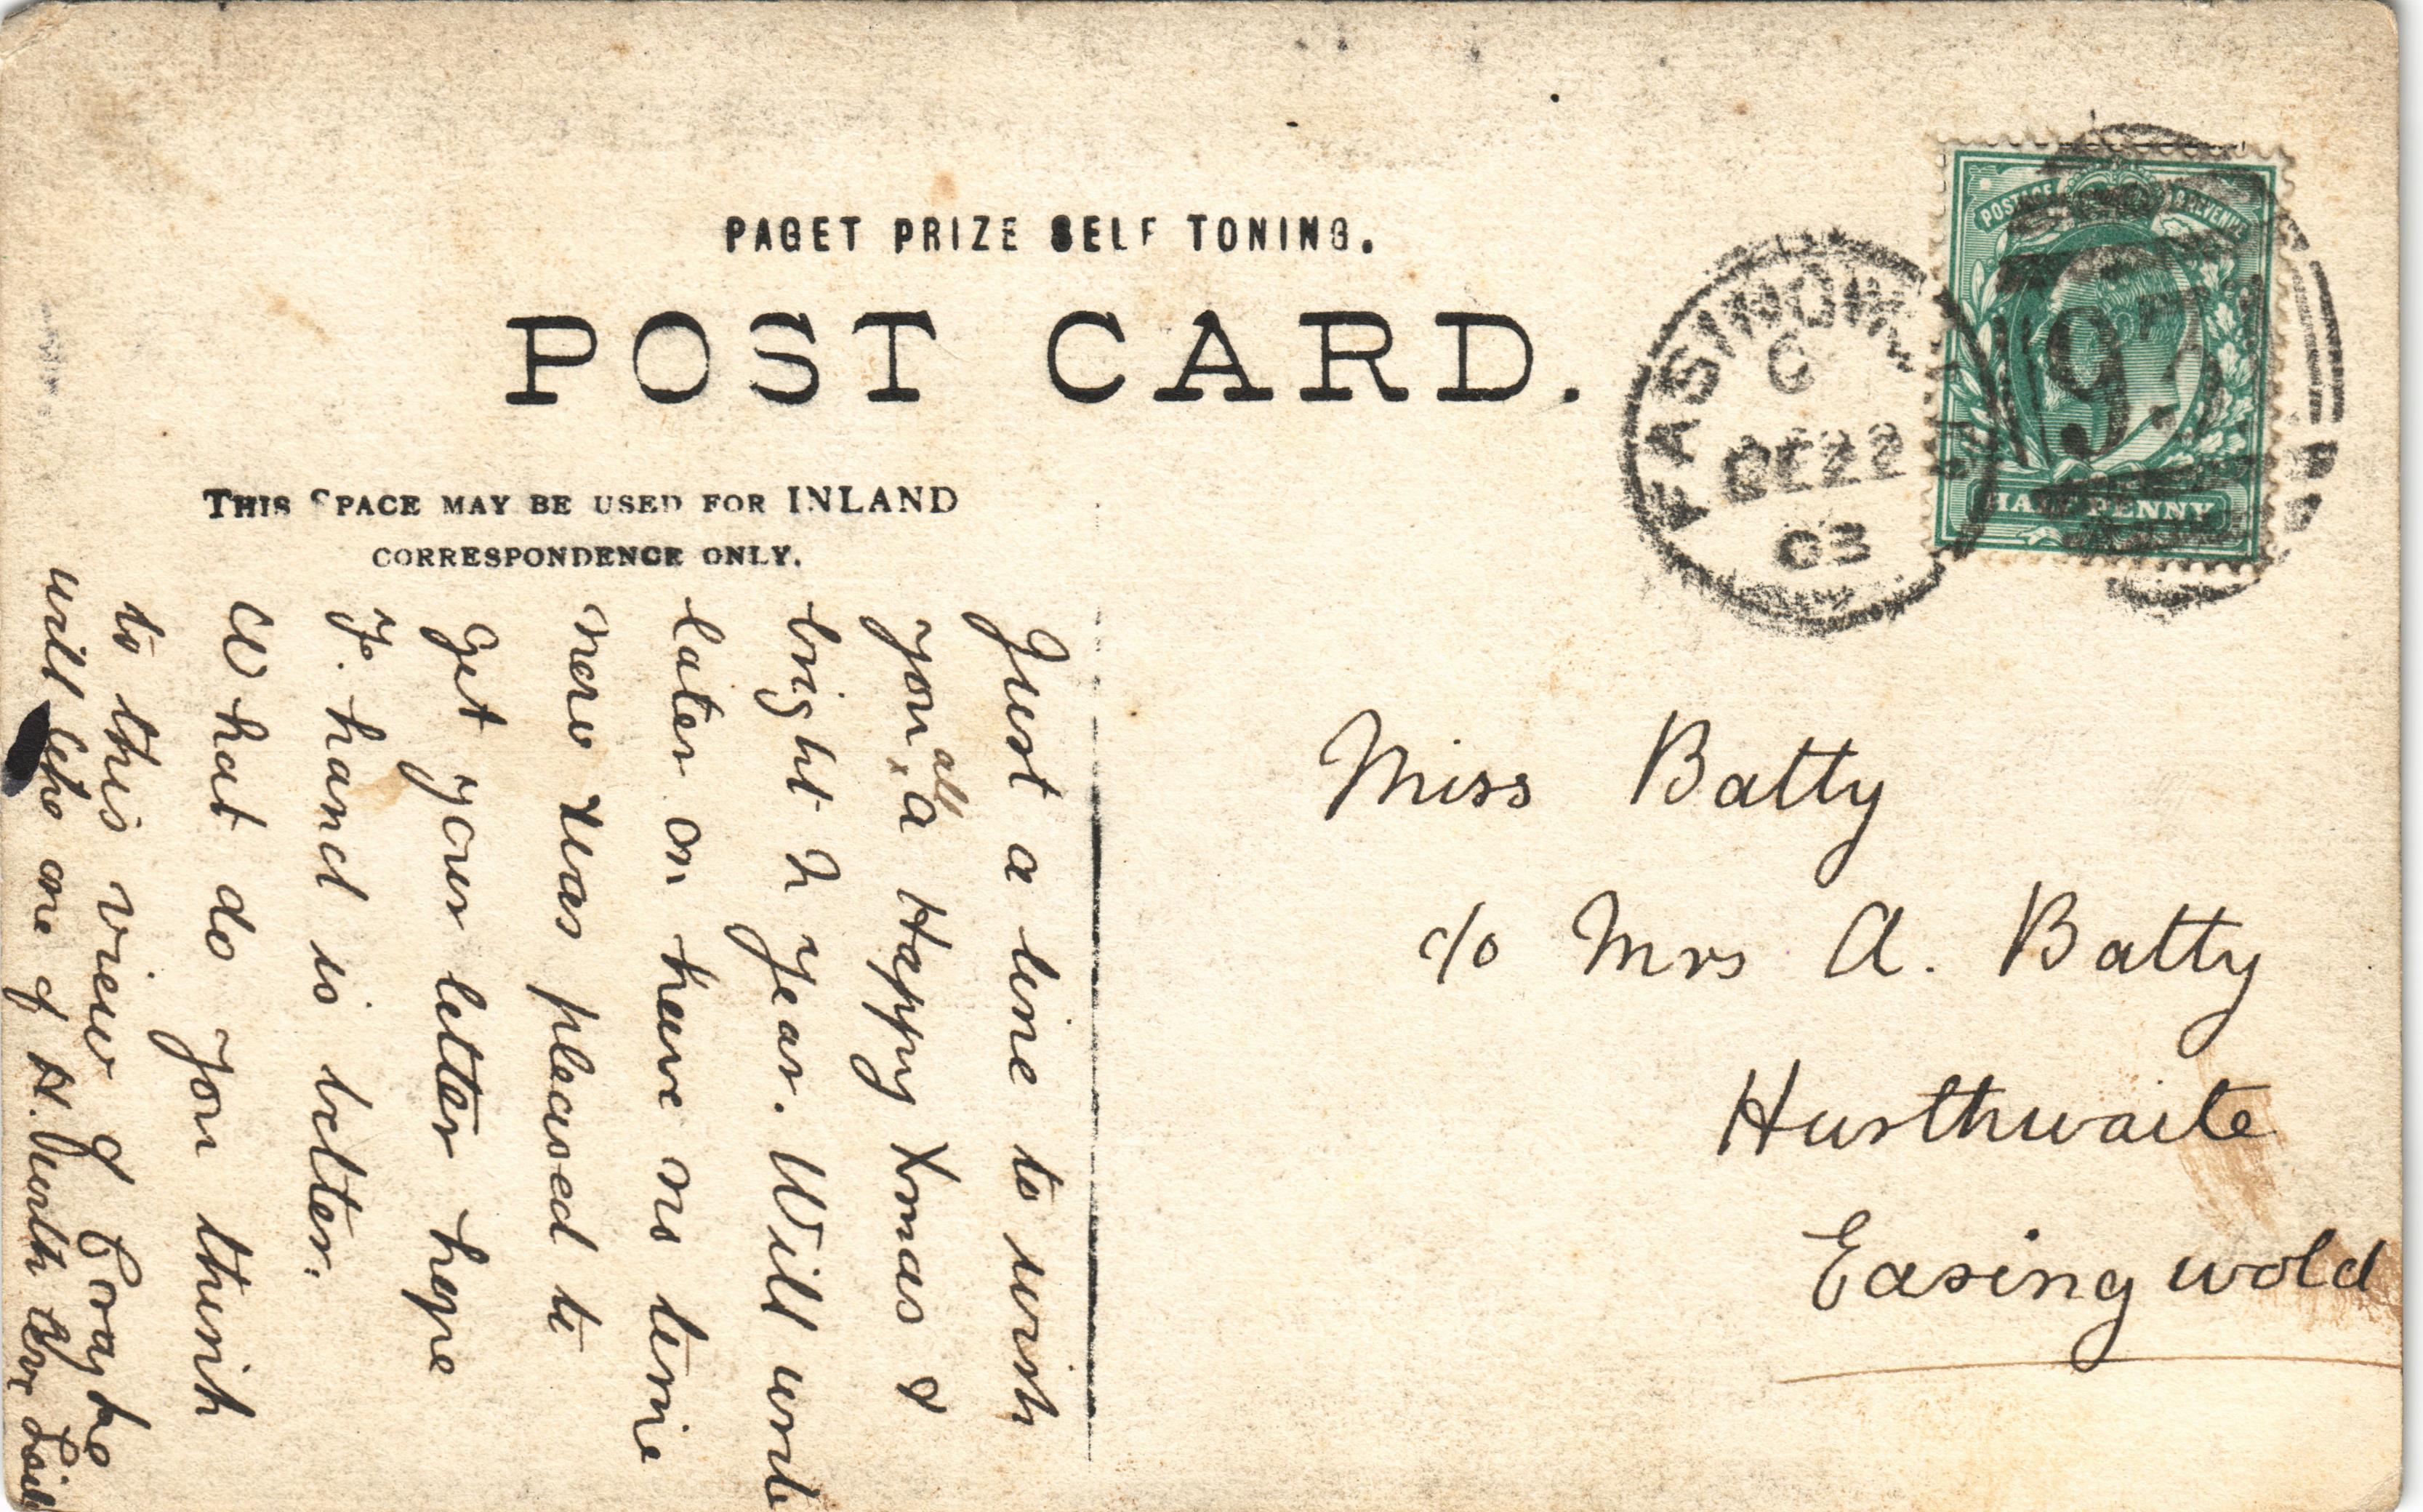 PAGET PRIZE SELF TONING.
POST CARD.
THIS SPACE MAY BE USED FOR INLAND
CORRESPONDENCE ONLY.
DE 22
03
POSTAGE & REVENUE
97
HALFPENNY
Just a line to wish
you all a Happy Xmas &
bright N year. Will write
later on have no time
now was pleased to
get your letter hope
F. hand is better.
What do you think
to this view of Crayke
will like one of H.
Miss Batty
c/o Mrs A. Batty
Husthwaite
Easingwold